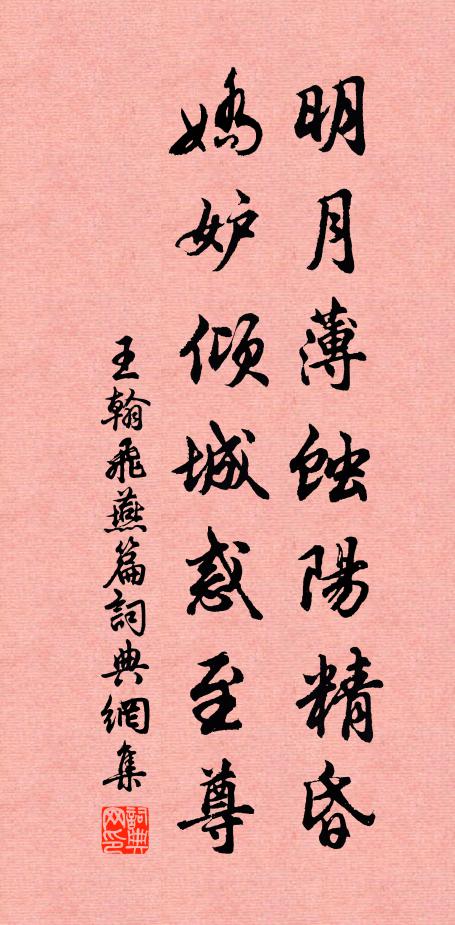 明月薄蝕陽精昏
嬌妒傾城惑至尊
王翰飛燕篇詞典網集
詞典网印